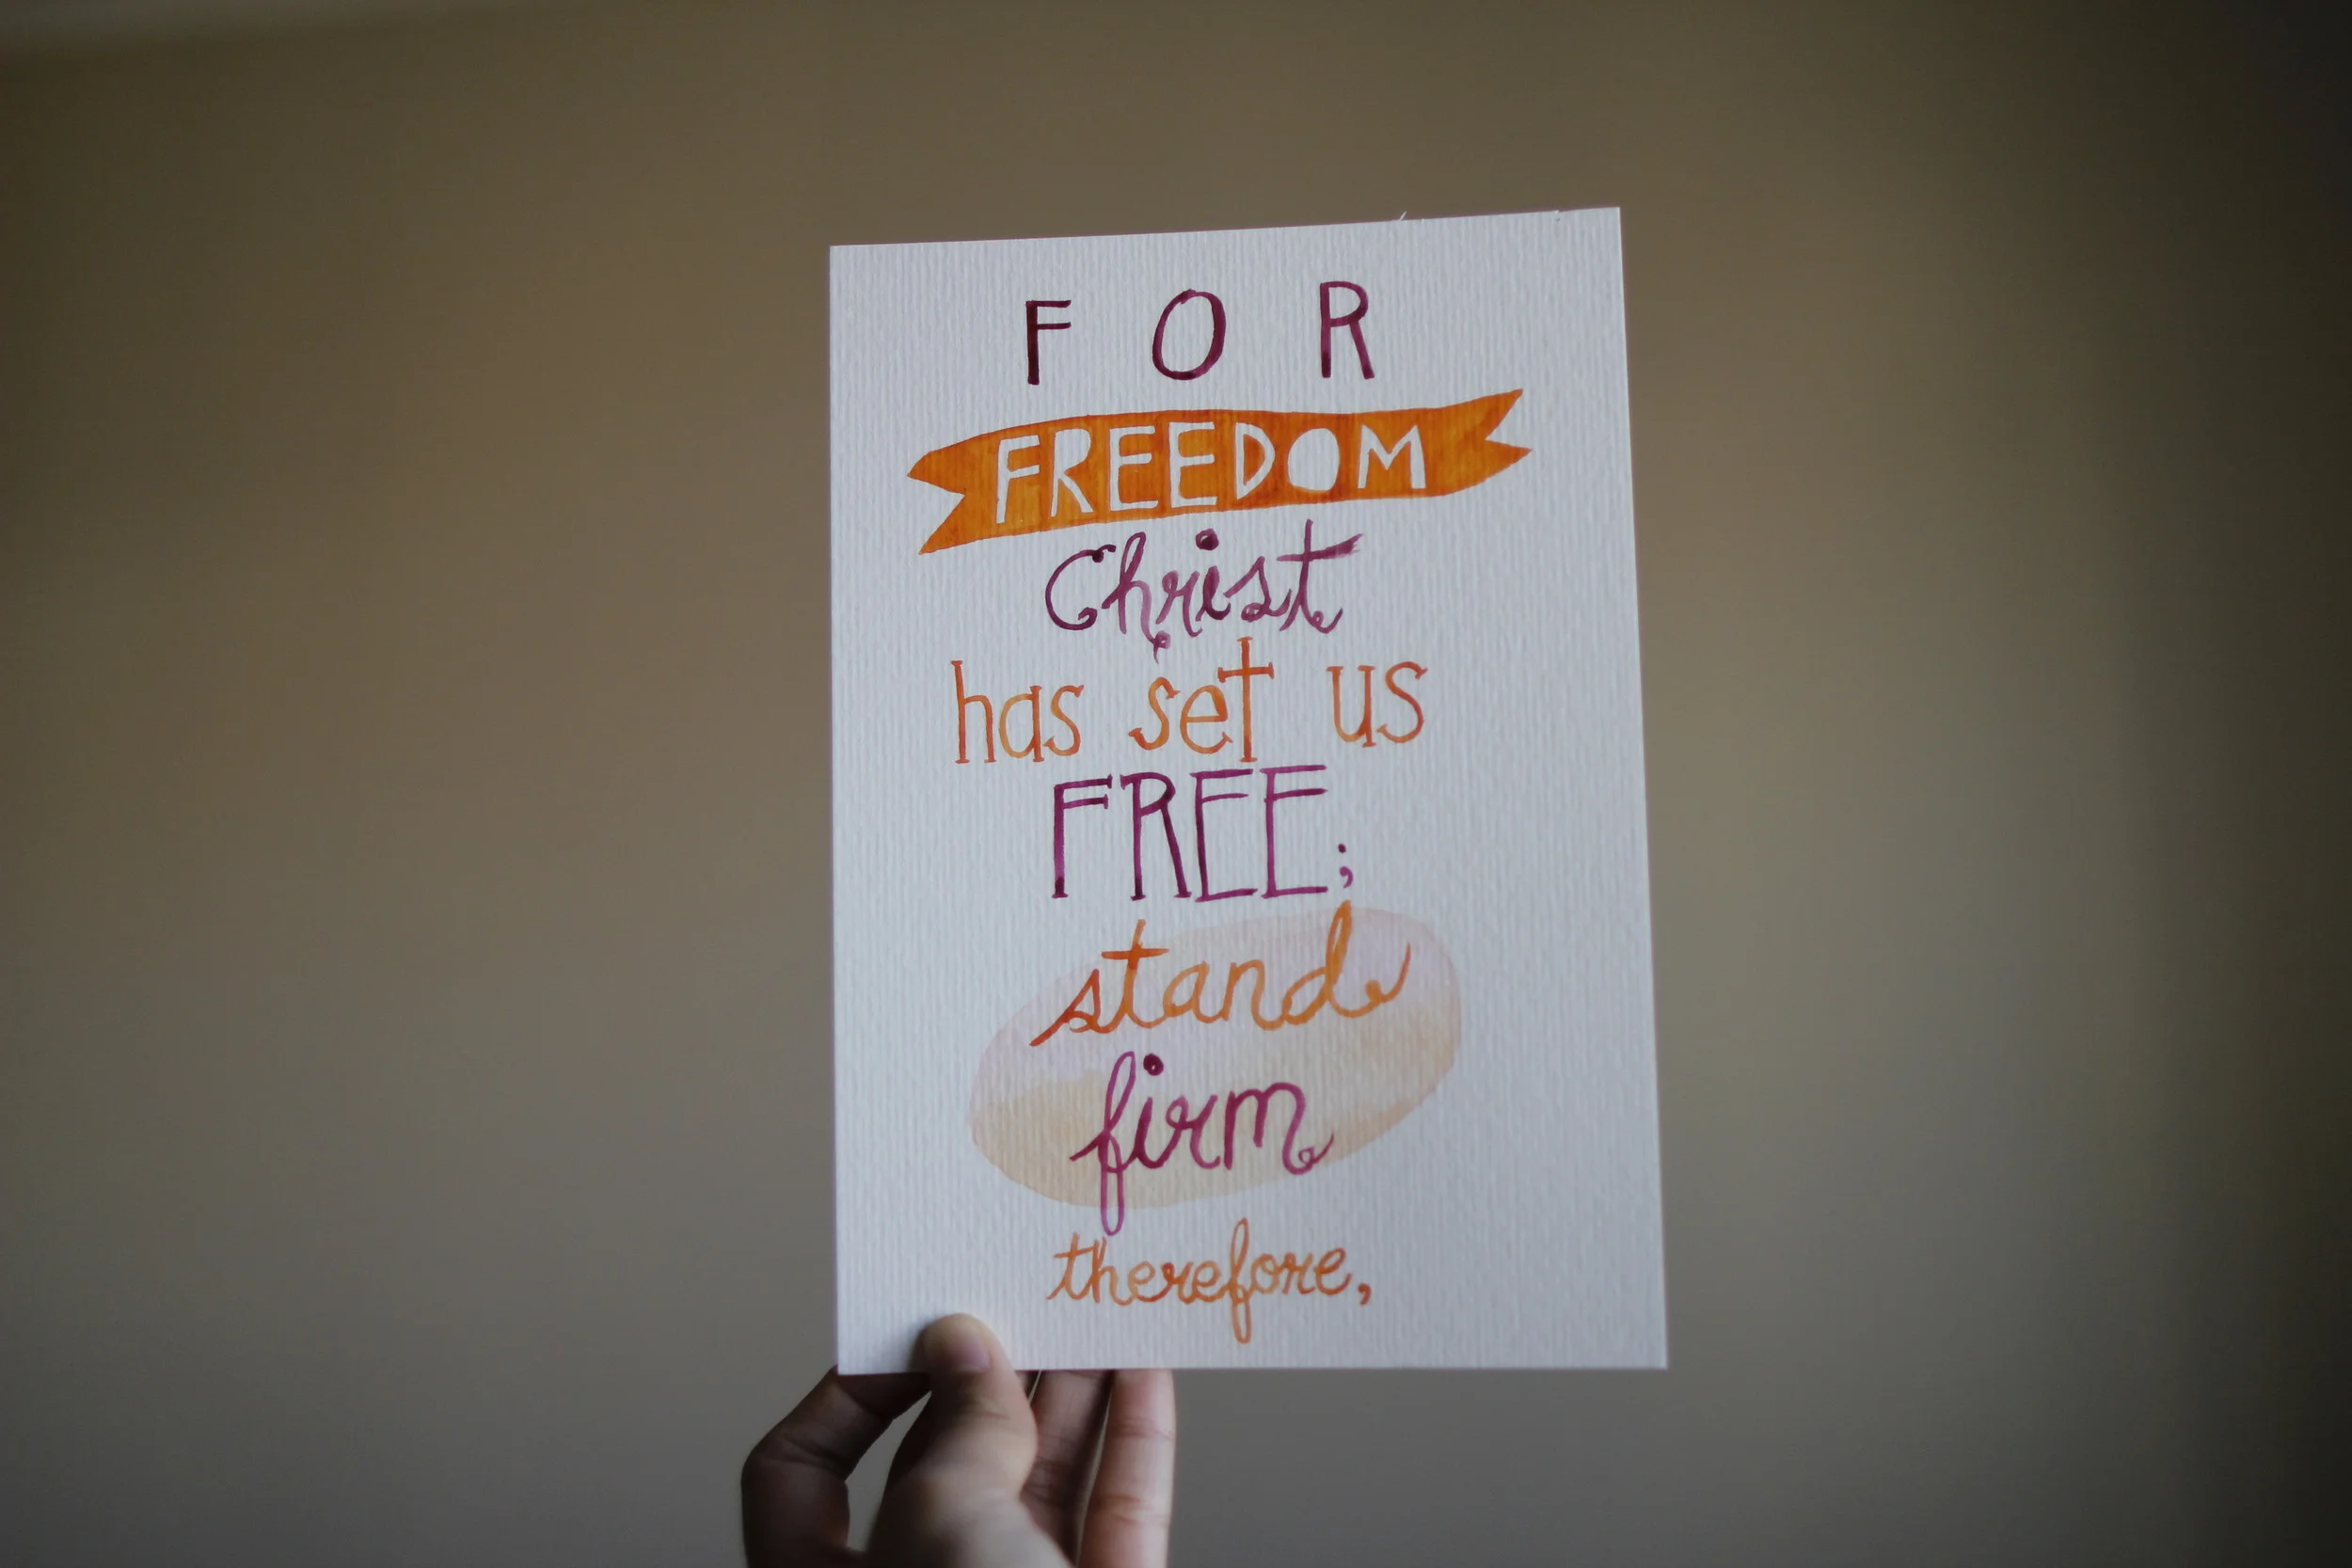 FOR
FREEDOM
Christ
has set us
FREE;
stand
firm
therefore,